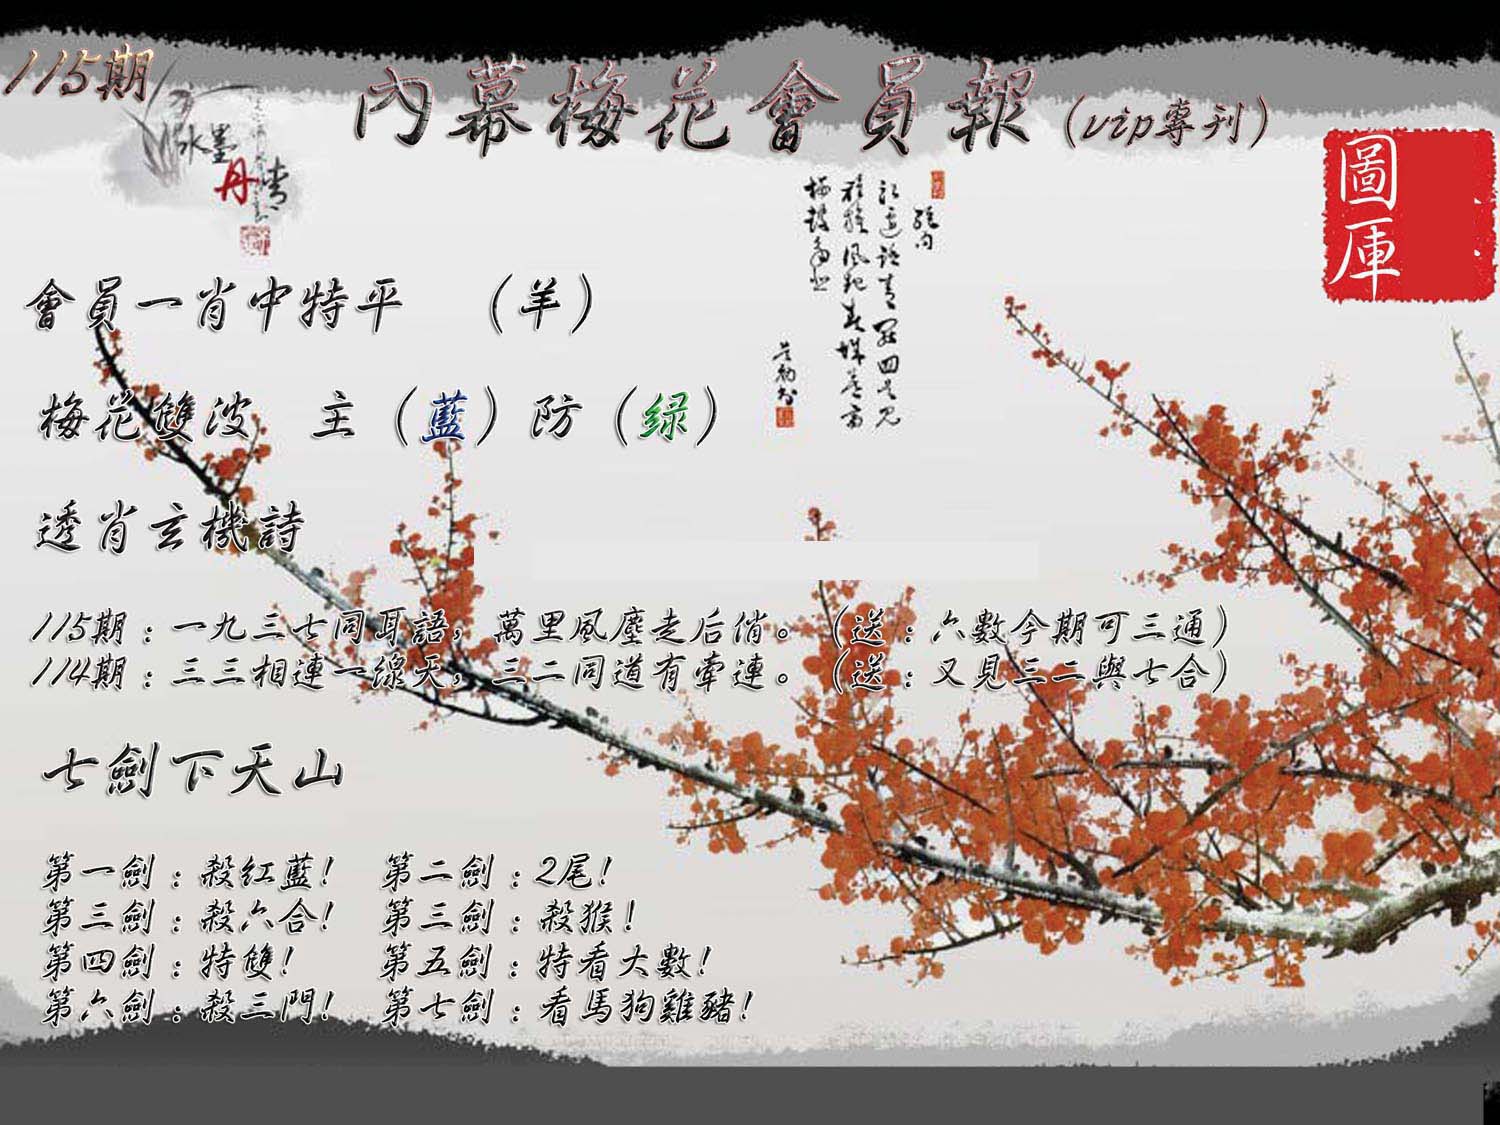 115期
內幕梅花會員報（vip專刊）
水墨
丹青
圖庫
會員一肖中特平　（羊）
梅花雙波　主（藍）防（绿）
透肖玄機詩
115期：一九三七同耳語，萬里風塵走后俏。（送：六數今期可三通）
114期：三三相連一線天，三二同道有牽連。（送：又見三二與七合）
七劍下天山
第一劍：殺紅藍！　第二劍：2尾！
第三劍：殺六合！　第三劍：殺猴！
第四劍：特雙！　第五劍：特看大數！
第六劍：殺三門！　第七劍：看馬狗雞豬！